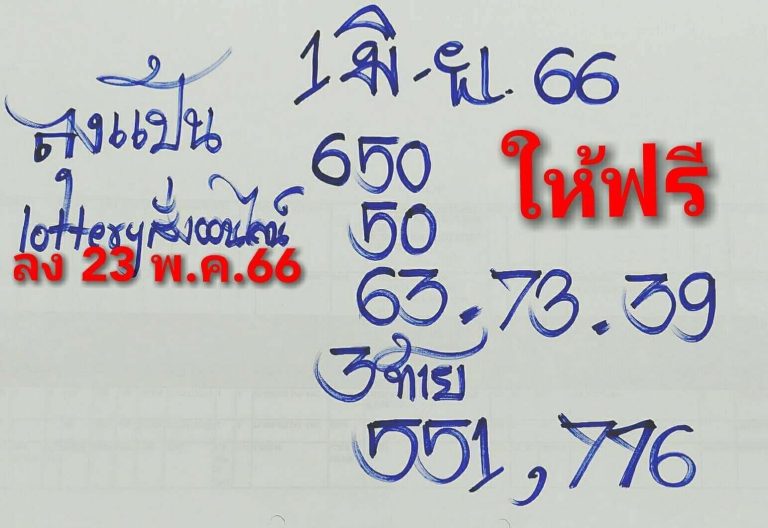 1 มิ.ย. 66
ลุงแป้น
lotteryสั่งออนไลน์
ลง 23 พ.ค.66
650
ให้ฟรี
50
63.73.39
3ท้าย
551,776